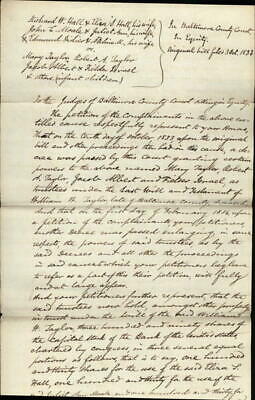 Richard W. Hall & Eliza S. Hall, his wife,
John E. Moale & Juliet Ann, his wife
& Edmund his wife, vs
Mary Taylor, Robert A. Taylor
Jacob Albert &
& others infant children
In Baltimore County Court
In Equity.
Original bill filed 3 Oct. 1833
To the Judges of Baltimore County Court sitting in Equity
The petition of the complainants in the above entitled
cause respectfully represent to your Honors,
that on the tenth day of October 1833 upon the original
bill and other proceedings then had in the cause, a decree
was passed by this court granting certain
powers to the above named Mary Taylor, Robert
A. Taylor Jacob Albert and as
trustees under the Last Will and Testament of
William W. Taylor late of Baltimore county deceased
And that on the first day of February 1834 upon
a petition of the complainants your petitioners
another decree was passed enlarging, in one
respect the powers of said trustees as by the
said Decrees and all other the proceedings
in said cause which your petitioners beg leave
to refer as a part of this their petition, will fully
and at large appear.
And your petitioners further represent that the
said trustees now hold amongst the property
in trust under the will of the said William
W. Taylor three hundred and ninety shares of
the Capital stock of the Bank of the United States,
chartered by congress in three several equal
portions as follows that is to say, one hundred
and thirty shares for the use of the said Eliza S.
Hall, one hundred and thirty for the use of the
one hundred and thirty for